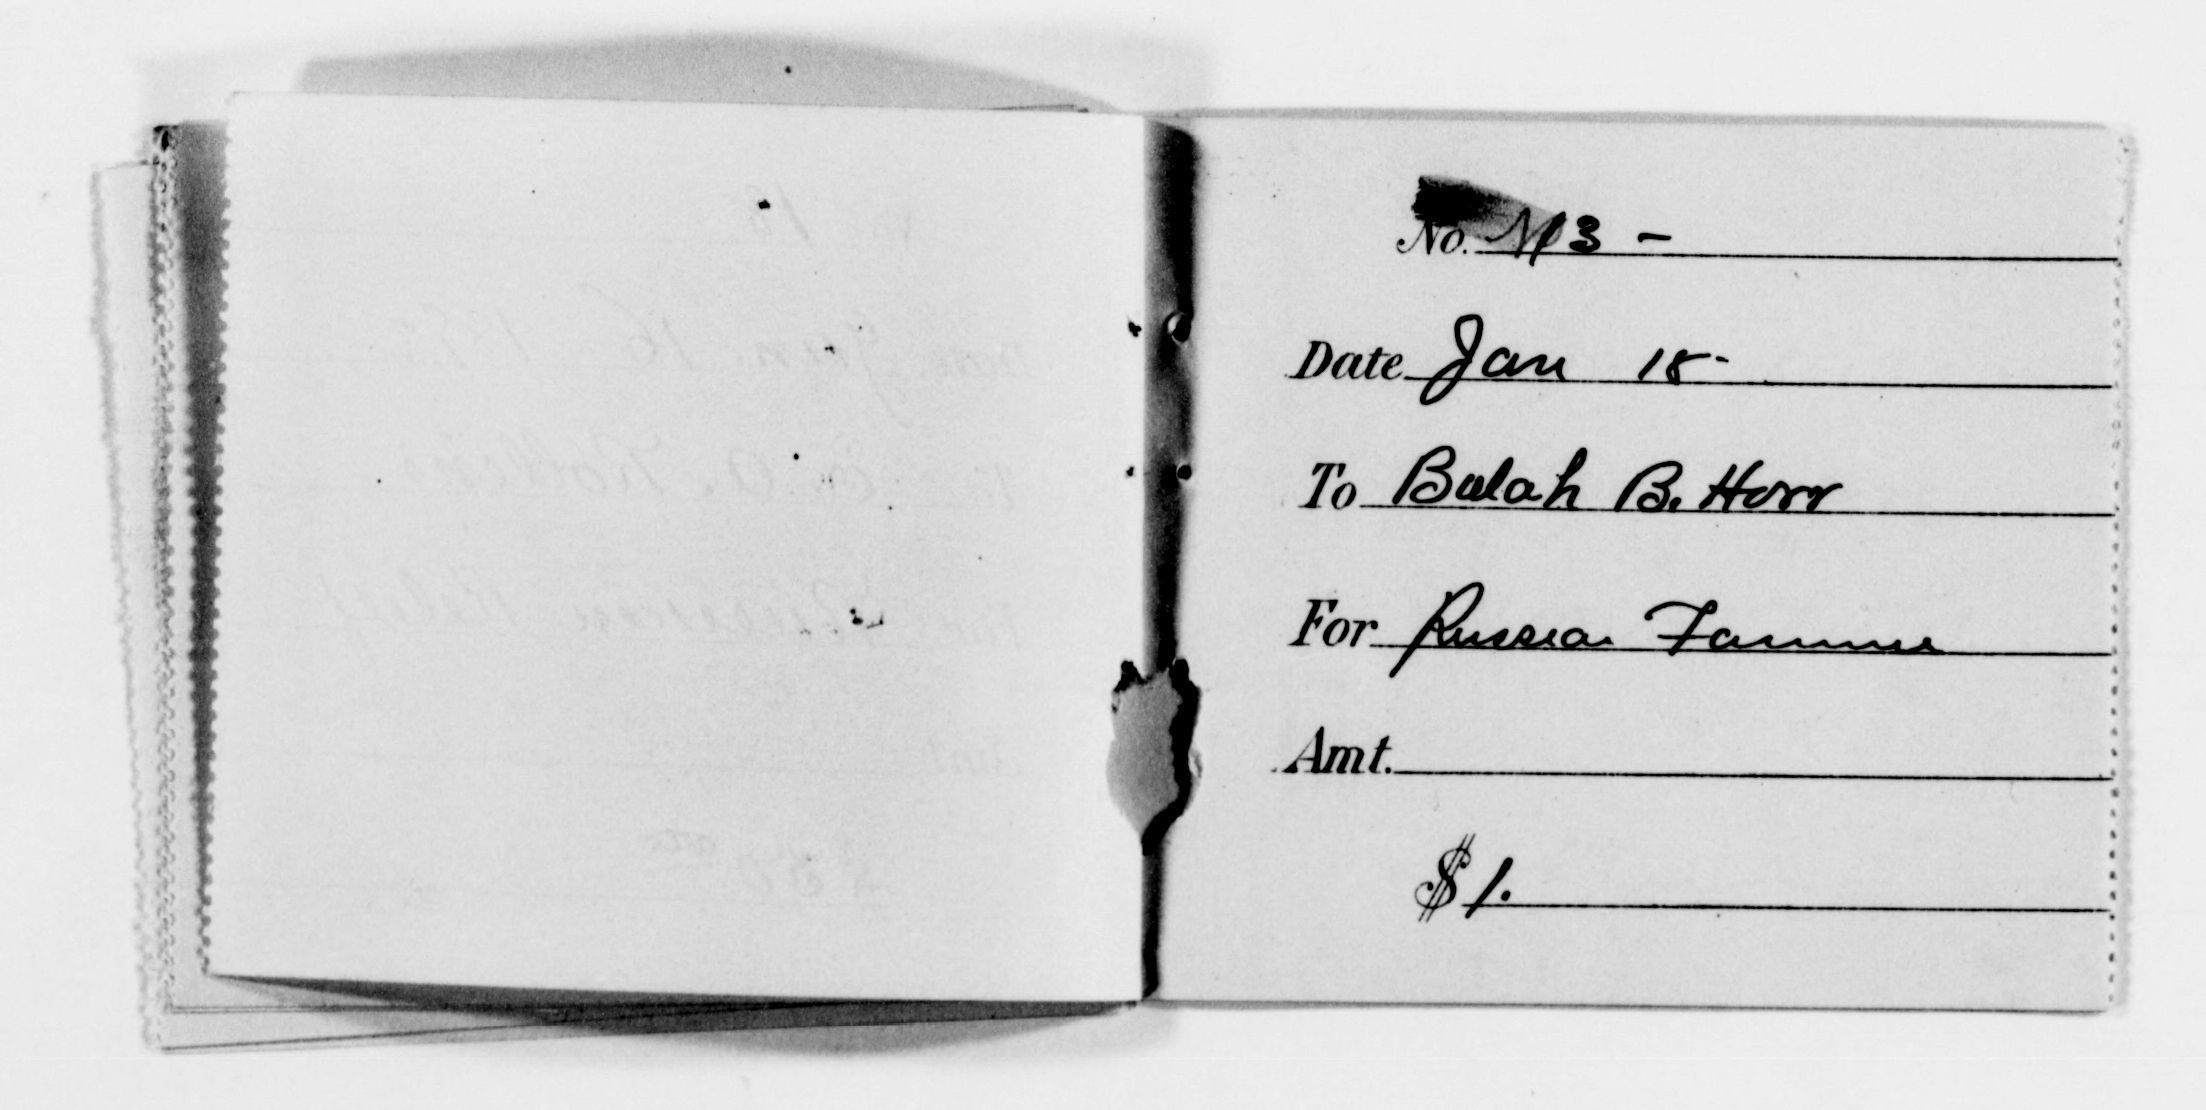 No. 113 -
Date Jan 18-
To Bulah B. Horr
For Russia Famine
Amt.
$ 1.